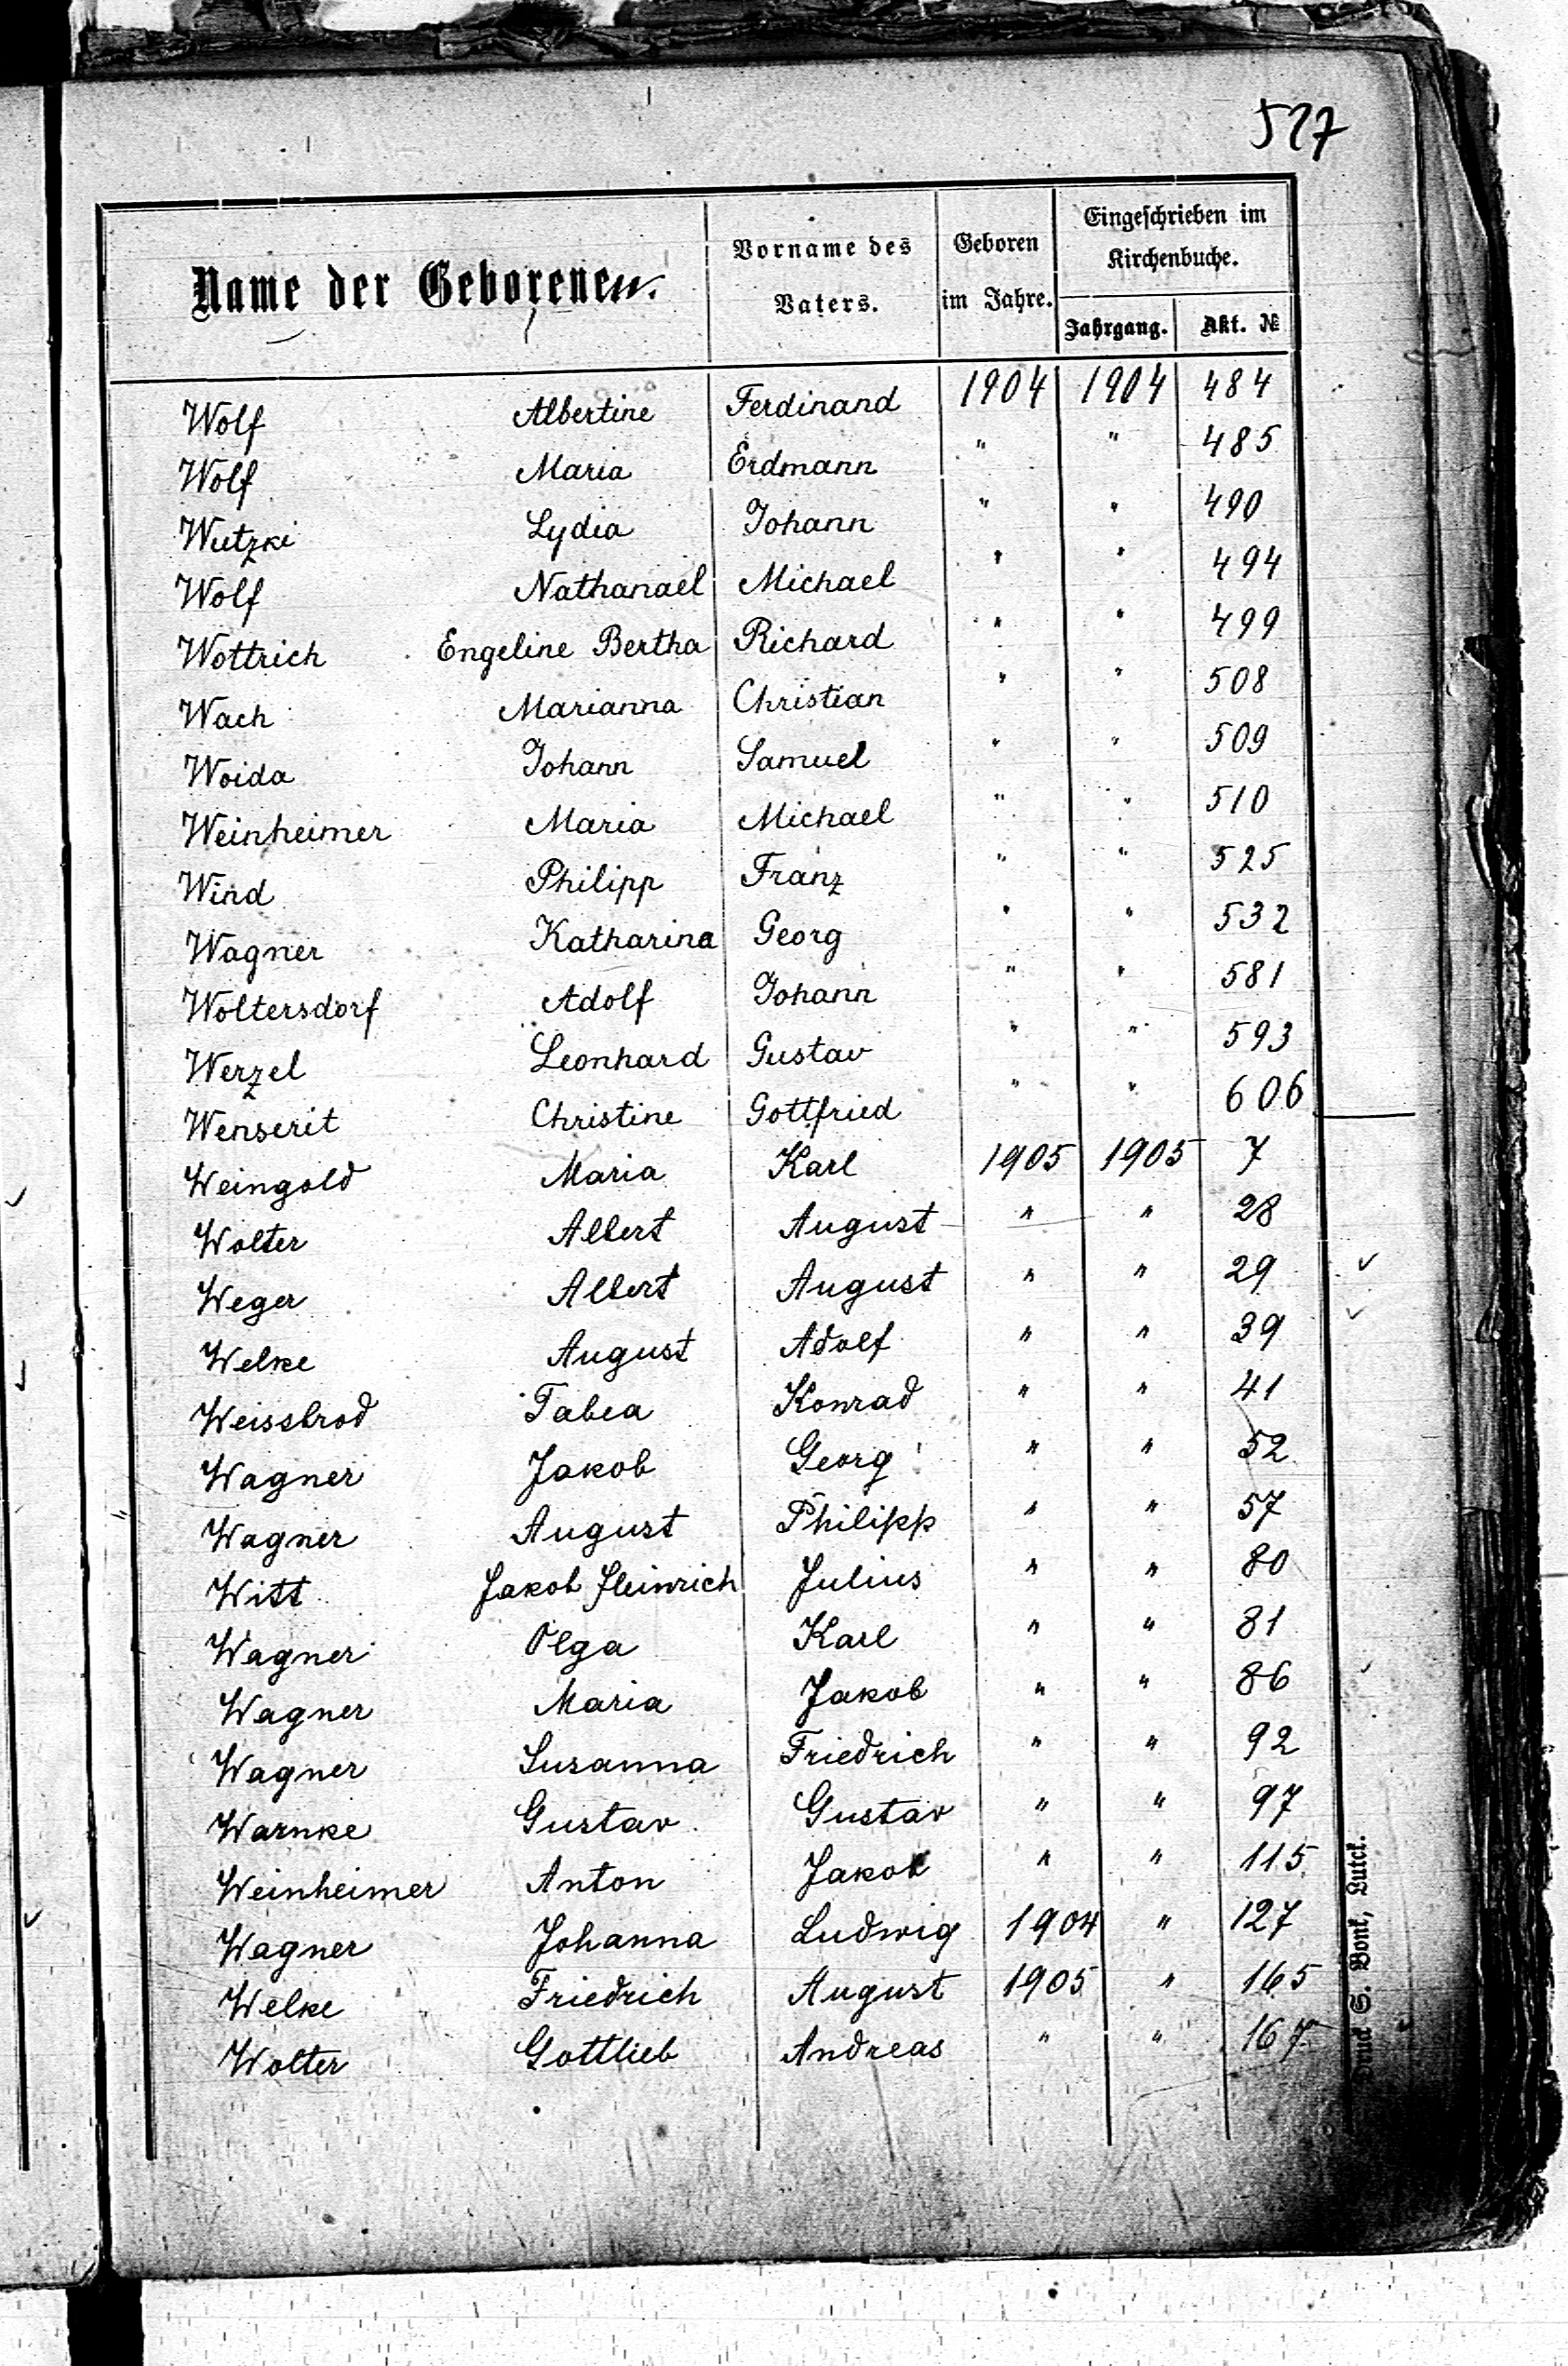 527
Name der Geborenen.
Vorname des Vaters.
Geboren im Jahre.
Eingeschrieben im Kirchenbuche.
Jahrgang. Akt. №
Wolf Albertine Ferdinand 1904 1904 484
Wolf Maria Erdmann " " 485
Wutzki Lydia Johann " " 490
Wolf Nathanael Michael " " 494
Wottrich Engeline Bertha Richard " " 499
Wach Marianna Christian " " 508
Woida Johann Samuel " " 509
Weinheimer Maria Michael " " 510
Wind Philipp Franz " " 525
Wagner Katharina Georg " " 532
Woltersdorf Adolf Johann " " 581
Werzel Leonhard Gustav " " 593
Wenserit Christine Gottfried " " 606
Weingold Maria Karl 1905 1905 7
Wolter Albert August " " 28
Weger Albert August " " 29
Welke August Adolf " " 39
Weissbrod Tabea Konrad " " 41
Wagner Jakob Georg " " 52
Wagner August Philipp " " 57
Witt Jakob Heinrich Julius " " 80
Wagner Olga Karl " " 81
Wagner Maria Jakob " " 86
Wagner Susanna Friedrich " " 92
Warnke Gustav Gustav " " 97
Weinheimer Anton Jakob " " 115
Wagner Johanna Ludwig 1904 " 127
Welke Friedrich August 1905 " 165
Wolter Gottlieb Andreas " " 167
Druck S. Bonk, Lutck.